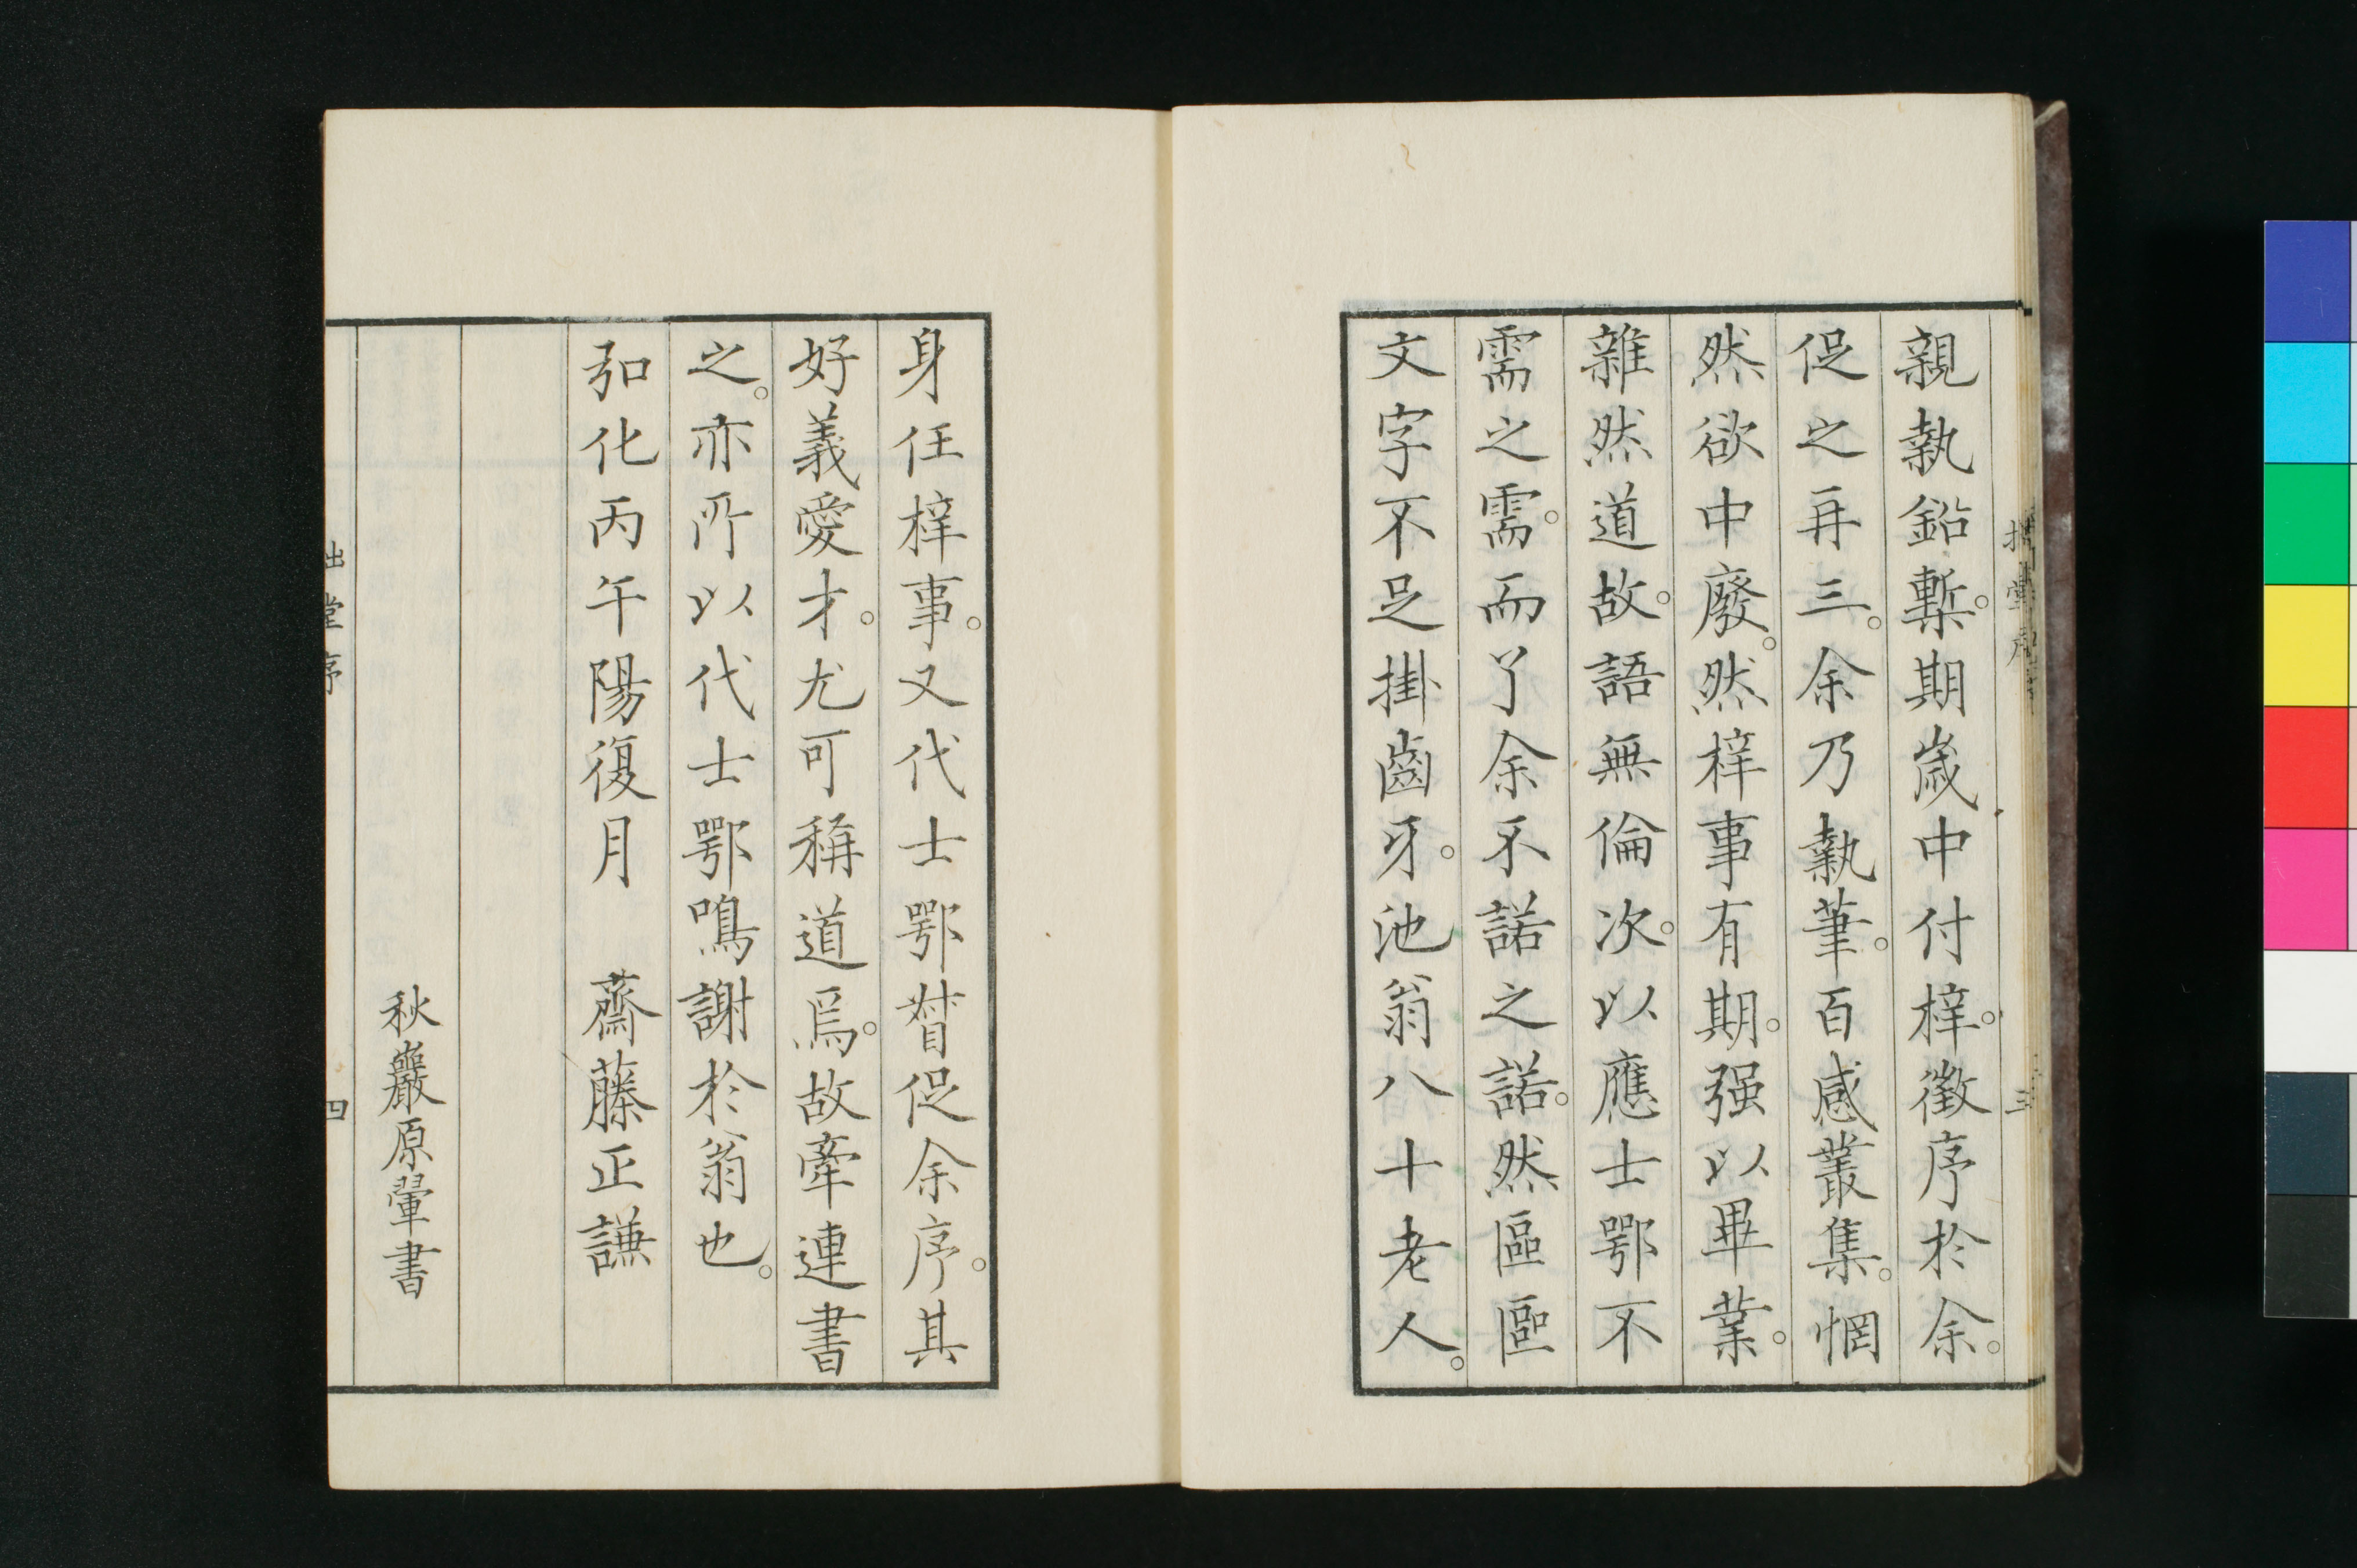 親執鉛槧。期歲中付梓。徵序於余。
促之再三。余乃執筆。百感叢集。惘
然欲中廢。然梓事有期。强以畢業。
雜然道故。語無倫次。以應士鄂不
需之需。而了余不諾之諾。然區區
文字不足掛齒牙。池翁八十老人。
拙堂序
三
身任梓事。又代士鄂督促余序。其
好義愛才。尤可稱道焉。故牽連書
之。亦所以代士鄂鳴謝於翁也。
弘化丙午陽復月　齋藤正謙
秋巖原翬書
拙堂序
四